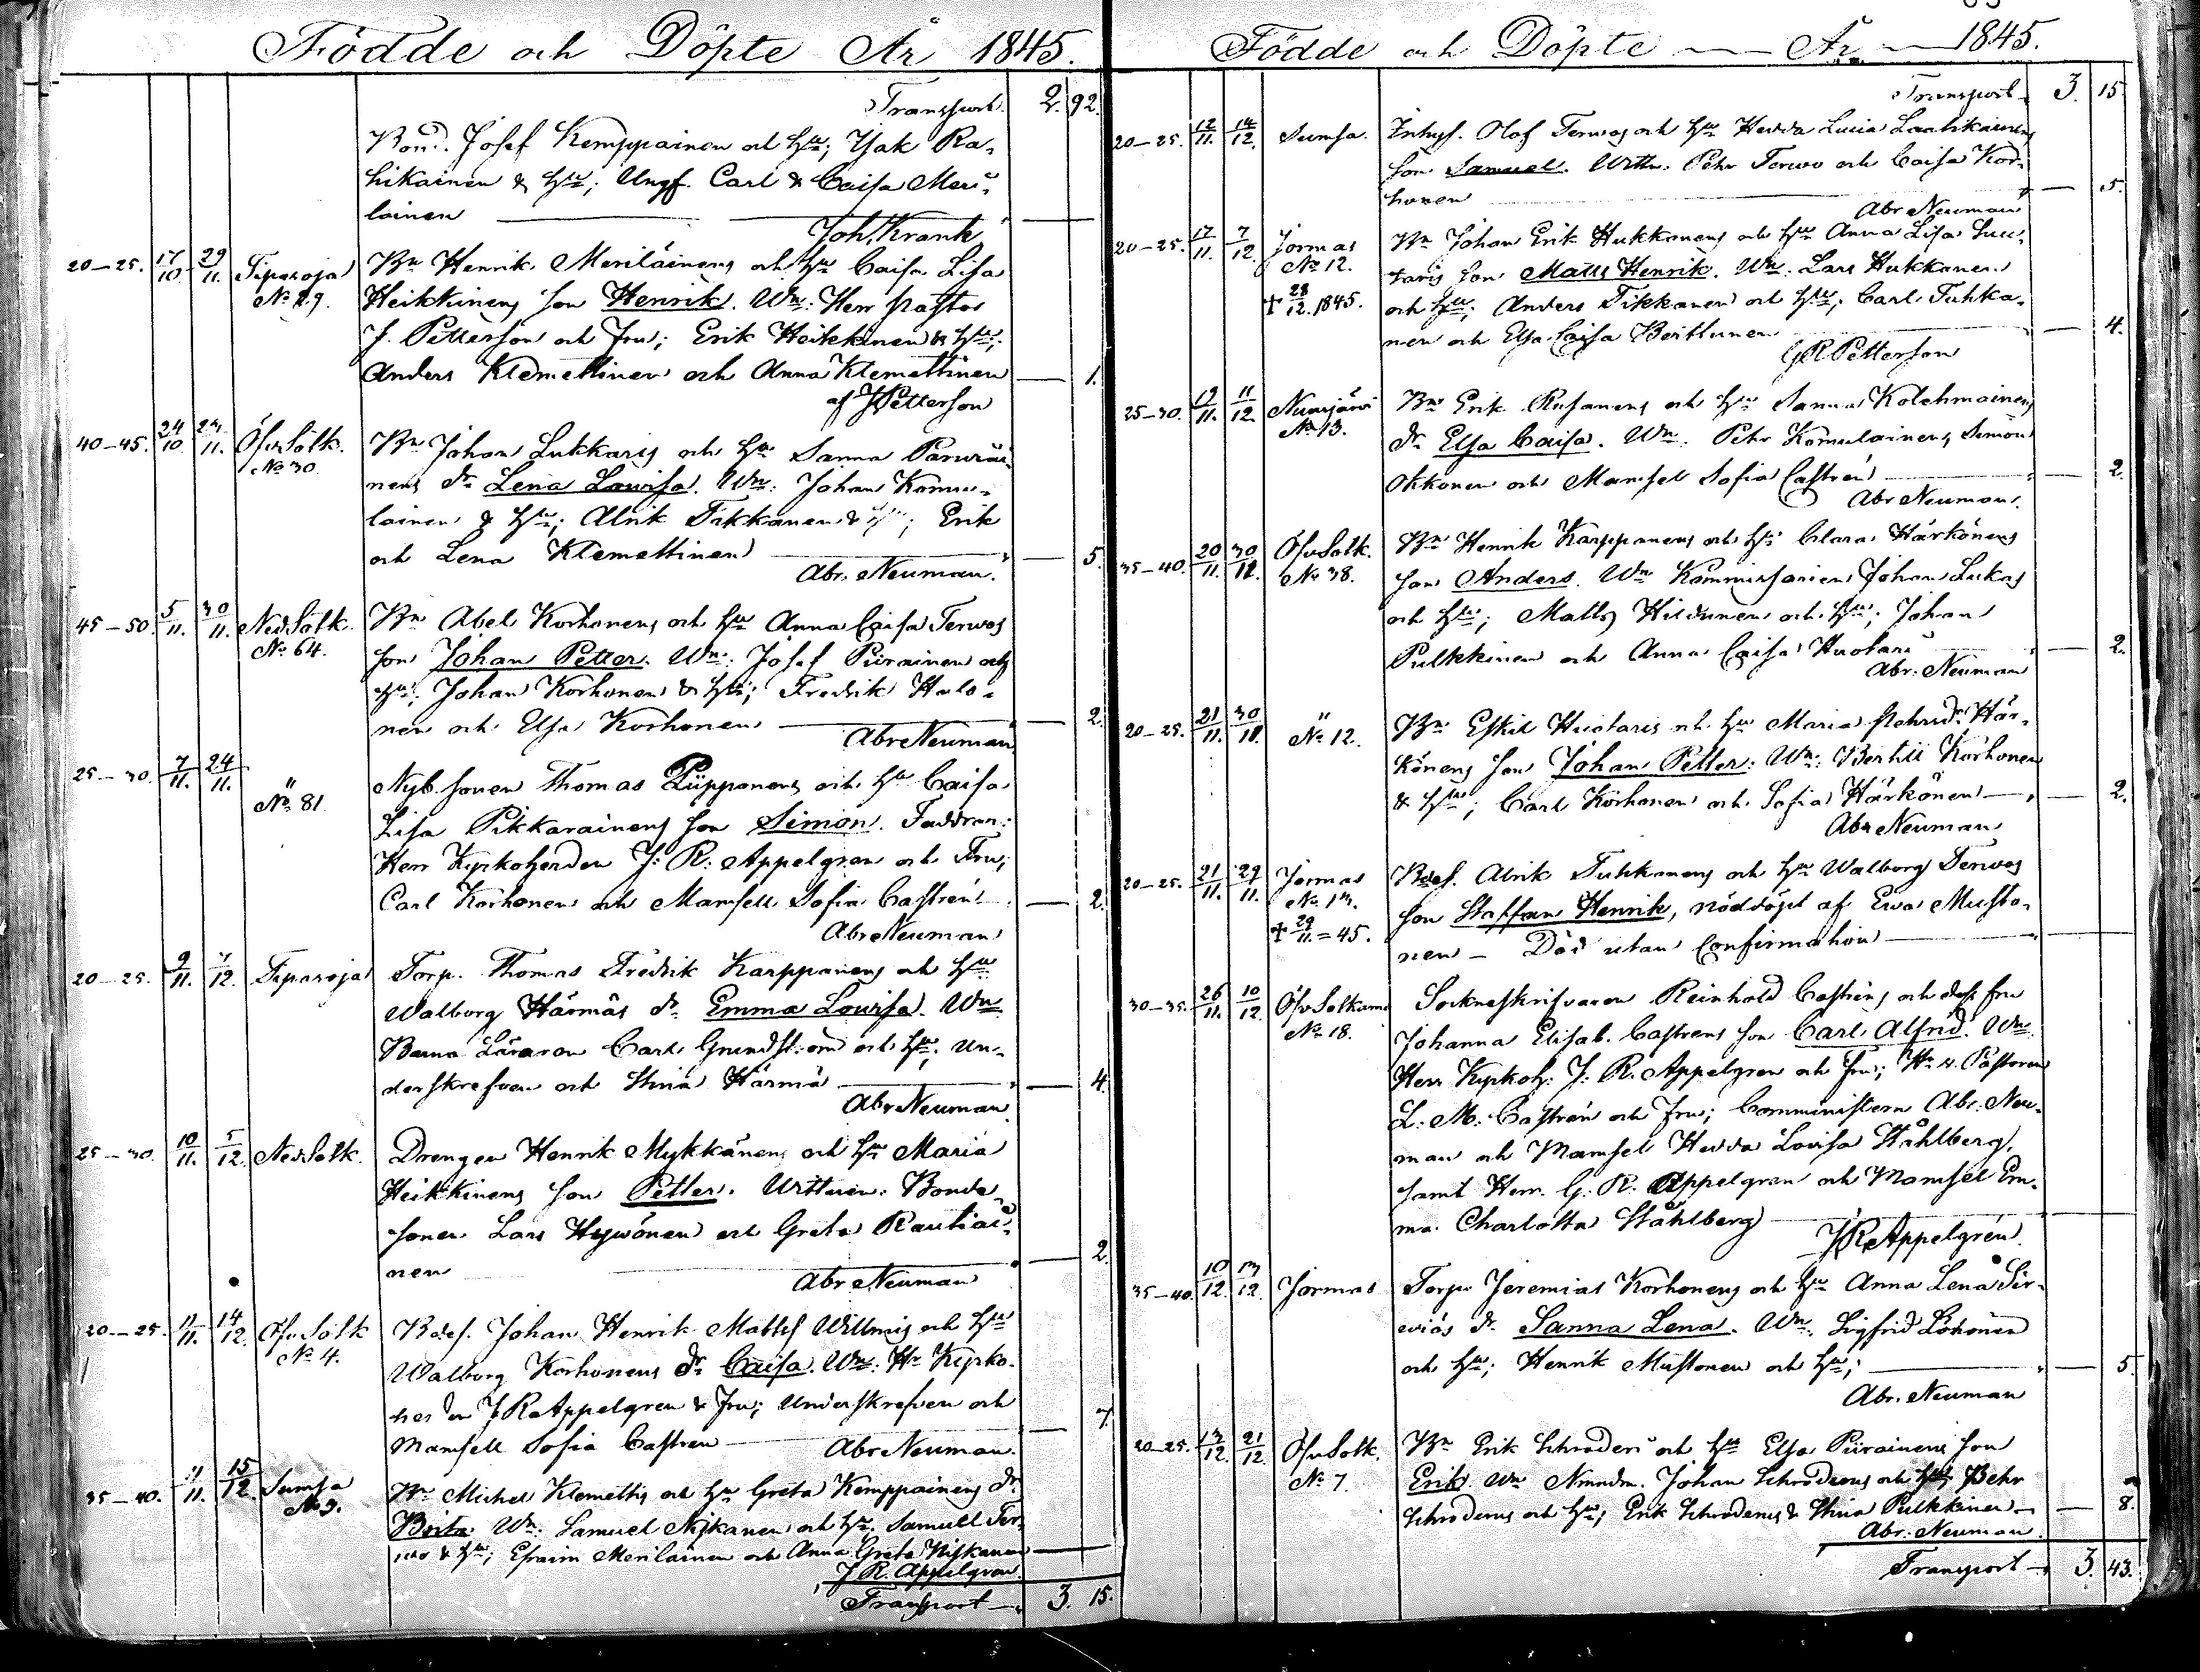 Födde och Döpte År 1845.
Transport. 2. 92.
Bond. Josef Kemppainen och Hu; Isak Ra-
hikainen & Hu; Ungf. Carl & Caisa Meri-
lainen
Joh. Krank
20-25. 17/10 29/11. Tipasoja Bn Henrik Meriläinens och Hu Caisa Lisa
No 29. Heikkinens son Henrik. Wn: Herr Pastor
J. Petterson och Fru; Erik Heikkinen & Hu;
Anders Klemettinen och Anna Klemettinen 1.
af J Petterson
40-45. 24/10 23/11. Öfv Sotk. Bn Johan Lukkaris och Hu Sanna Parviai-
No 30. nens dr Lena Lowisa. Wn: Johan Komu-
lainen & Hu; Alrik Tikkanen & Hu; Erik
och Lena Klemettinen 5.
Abr. Neuman.
45-50. 5/11. 30/11. Ned Sotk. Bn Abel Korhonens och Hu Anna Caisa Terwos
No 64. son Johan Petter. Wn: Josef Piirainen och
Hu; Johan Korhonen & Hu; Fredrik Halo-
nen och Elsa Korhonen 2.
Abr Neuman
25-30. 7/11. 24/11. " Nyb. sonen Thomas Piipponens och Hu Caisa
No 81. Lisa Pikkarainens son Simon. Faddrar:
Herr Kyrkoherden J: R: Appelgren och Fru;
Carl Korhonen och Mamsell Sofia Castrén 2.
Abr Neuman
20-25. 9/11. 7/12. Tipasoja Torp. Thomas Fredrik Karppanens och Hu
Walborg Härmäs dr Emma Lowisa. Wn
Barna Läraren Carl Grundström och Hu; Un-
derskrefven och Stina Härmä 4.
Abr Neuman
25-30. 10/11. 5/12. Ned Sotk. Drengen Henrik Mykkänens och Hu Maria
Heikkinens son Petter. Wittnen: Bonde-
sonen Lars Hywönen och Greta Rautiai-
nen 2.
Abr Neuman
20-25. 11/11. 14/12. Öfv Sotk Bdes. Johan Henrik Mattsf Willmis och Hu
No 4. Walborg Korhonens dr Caisa. Wn: Hr Kyrko-
herden J R Appelgren & Fru; Underskrefven och
Mamsell Sofia Castren 7.
Abr Neuman.
35-40. 11/11. 15/12. Sumsa Bn Michel Klemettis och Hu Greta Kemppainens dr
No 9. Brita Wn: Samuel Niskanen och Hu. Samuel Ter-
wo & Hu; Efraim Meriläinen och Anna Greta Niskanen
J R. Appelgren.
Transport 3. 15.
Födde och Döpte År 1845.
Transport 3. 15.
20-25. 12/11. 14/12. Sumsa. Inhys. Olof Terwos och Hu Hedda Lucia Laatikainens
son Samuel. Wittn. Pehr Terwo och Caisa Kor-
honen 5.
Abr Neuman
20-25. 17/11. 7/12. Jormas Bn Johan Erik Hukkanens och Hu Anna Lisa Luu-
No 12. taris son Matts Henrik. Wn: Lars Hukkanen
+ 28/12. 1845. och Hu; Anders Tikkanen och Hu; Carl Tuhka-
nen och Elsa Caisa Berttunen 4.
G R Petterson
25-30. 19/11. 11/12. Nuasjärvi Bn Erik Rusanens och Hu Sanna Kolehmainens
No 13. dr Elsa Caisa. Wn. Pehr Komulainen, Simon
Okkonen och Mamsel Sofia Castrén 2.
Abr Neuman.
35-40. 20/11. 30/11. Öfv Sotk. Bn Henrik Karppanens och Hu Clara Härkönens
No 38. son Anders. Wn Kommissarien Johan Lukas
och Hu; Matts Hirdunen och Hu; Johan
Pulkkinen och Anna Caisa Huotari 2.
Abr. Neuman
20-25. 21/11. 30/11. " Bn Eskil Huotaris och Hu Maria Pehrsdr Här-
No 12. könens son Johan Petter: Wn: Bertil Korhonen
& Hu; Carl Korhonen och Sofia Härkönen 2.
Abr Neuman
20-25. 21/11. 29/11. Jormas Bdes. Alrik Tuhkanens och Hu Walborg Terwos
No 13. son Staffan Henrik, nöddöpt af Ewa Musto-
+ 29/11. = 45. nen - Död utan Confirmation
30-35. 26/11. 10/12. Öfv Sotkamo Sockneskrifvaren Reinhold Castréns och dess fru
No 18. Johanna Elisab. Castrens son Carl Alfrid. Wn
Herr Kyrkoh: J: R. Appelgren och Fru; Hr v. Pastoren
L: M: Castrén och Fru; Comministern Abr: Neu-
man och Mamsel Hedda Lovisa Ståhlberg,
samt Herr G: R: Appelgren och Mamsel Em-
ma Charlotta Ståhlberg
J R Appelgrén.
35-40. 10/12. 13/12. Jormas Torp. Jeremias Korhonens och Hu Anna Lena Sir-
wiös dr Sanna Lena. Wn. Sigfrid Lökönen
och Hu; Henrik Mustonen och Hu; 5.
Abr. Neuman
20-25. 13/12. 21/12. Öfv Sotk. Bn Erik Schroderi och Hu Elsa Piirainens son
No 7. Erik. Wn Nmndm. Johan Schroderus och Hu; Pehr
Schroderus och Hu; Erik Schroderus & Stina Pulkkinen 8.
Abr: Neuman
Transport 3. 43.